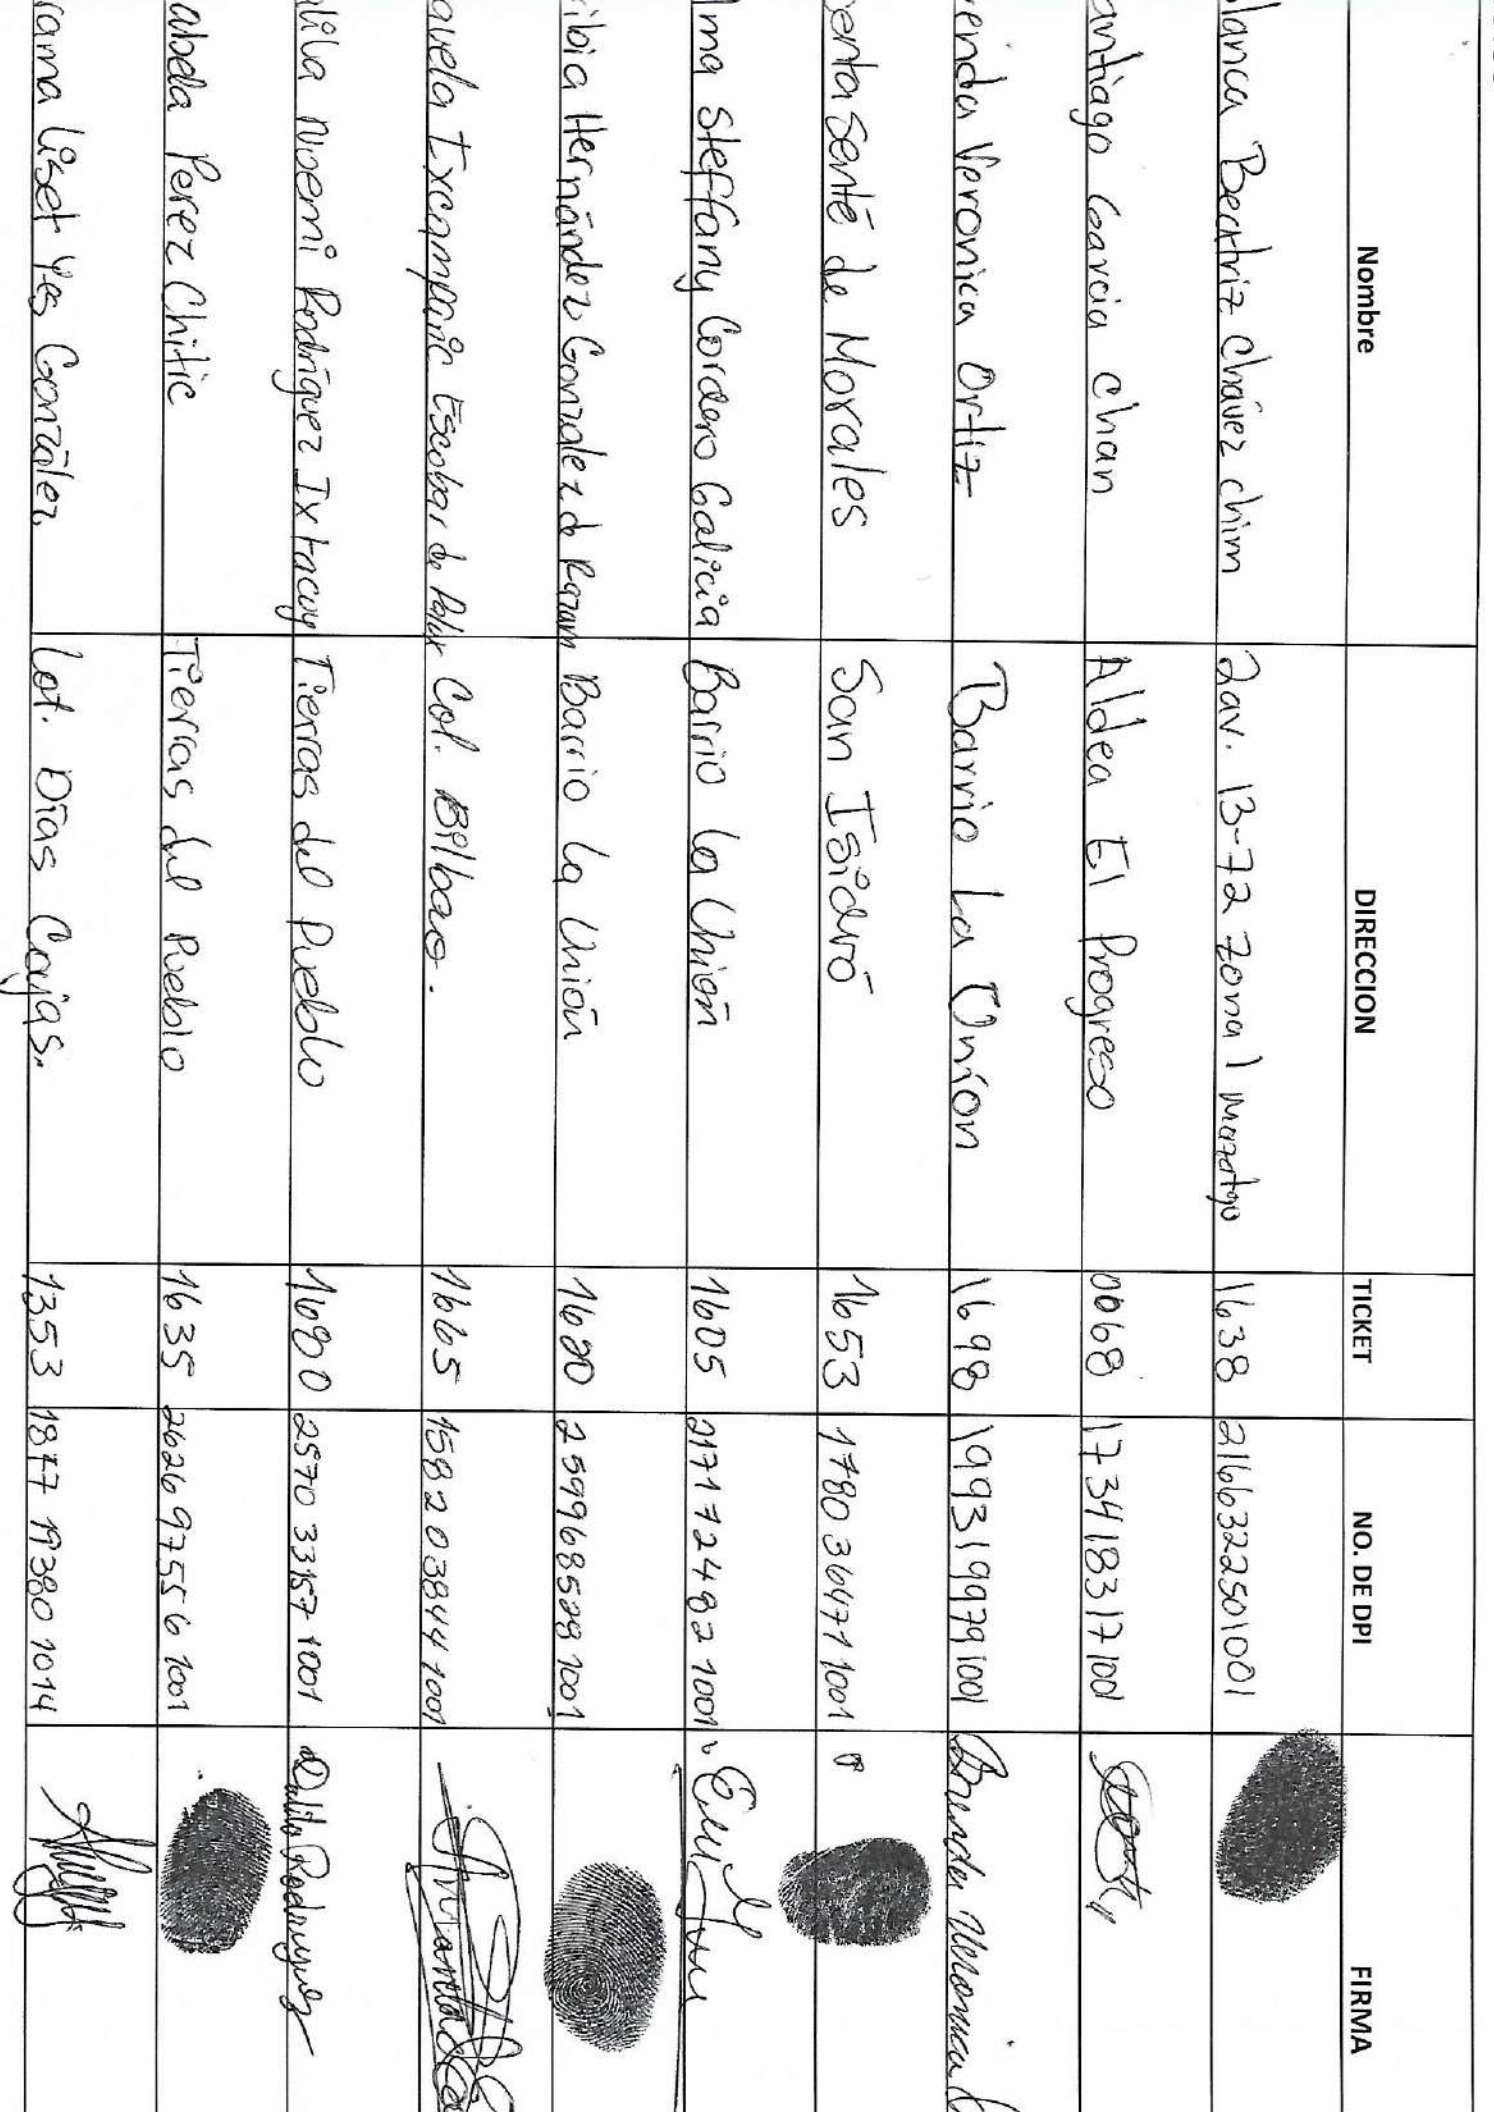 Nombre DIRECCION TICKET NO. DE DPI FIRMA
lanca Beatriz chávez chim 2av. 13-72 zona 1 Mazatgo 1638 2166322501001
antiago Garcia chan Aldea El Progreso 0068 1734183171001
enda Veronica Ortiz Barrio La Union 1698 1993199791001 Brenda Veronica
enta Senté de Morales San Isidro 1653 1780 36471 1001
lma Steffany Cordero Galicia Barrio La Unión 1605 2171 72482 1001
ibia Hernández Gonzalez de Barrio La Unión 1680 2599 68528 1001
avela Excamparic Escobar de Col. Bilbao. 1665 1582 03844 1001
alila Noemi Rodríguez Ixtacuy Tierras del Pueblo 1680 2570 33157 1001 Dalila Rodriguez
abela Perez Chitic Tierras del Pueblo 1635 2626 97556 1001
anna Liset Yes González. Lot. Días Cajas. 1353 1877 19380 1014